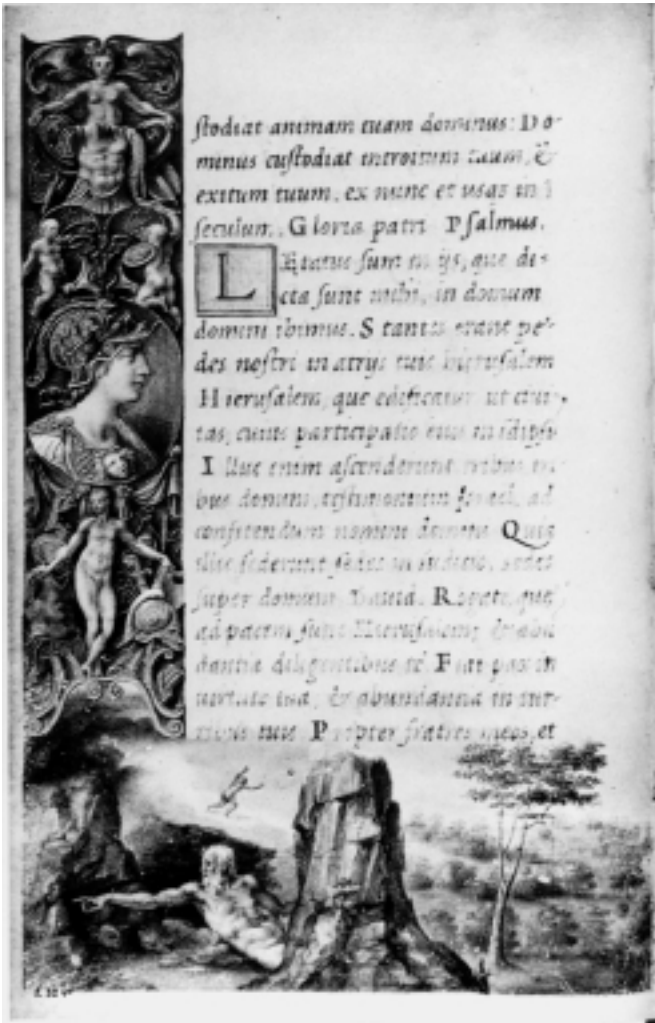 ſtodiat animam tuam dominus: Do-
minus cuſtodiat introitum tuum, &
exitum tuum, ex nunc et usqs in
ſeculum. Gloria patri Pſalmus.
LEtatus ſum in ijs, que di-
cta ſunt mihi, in domum
domini ibimus. Stantes erant pe-
des noſtri in atrijs tuis hieruſalem
Hieruſalem, que edificatur ut ciui-
tas, cuius participatio eius in idipſū
Illuc enim aſcenderunt tribus tri-
bus domini, teſtimonium Iſrael, ad
confitendum nomini domini Quia
illic ſederunt ſedes in iudicio, ſedes
ſuper domum Dauid. Rogate, que
ad pacem ſunt Hieruſalem, & abū
dantia diligentibus te. Fiat pax in
uirtute tua, & abundantia in tur-
ribus tuis Propter fratres meos, et